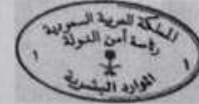 المملكة العربية السعودية
رئاسة أمن الدولة
١ ١
الموارد البشرية